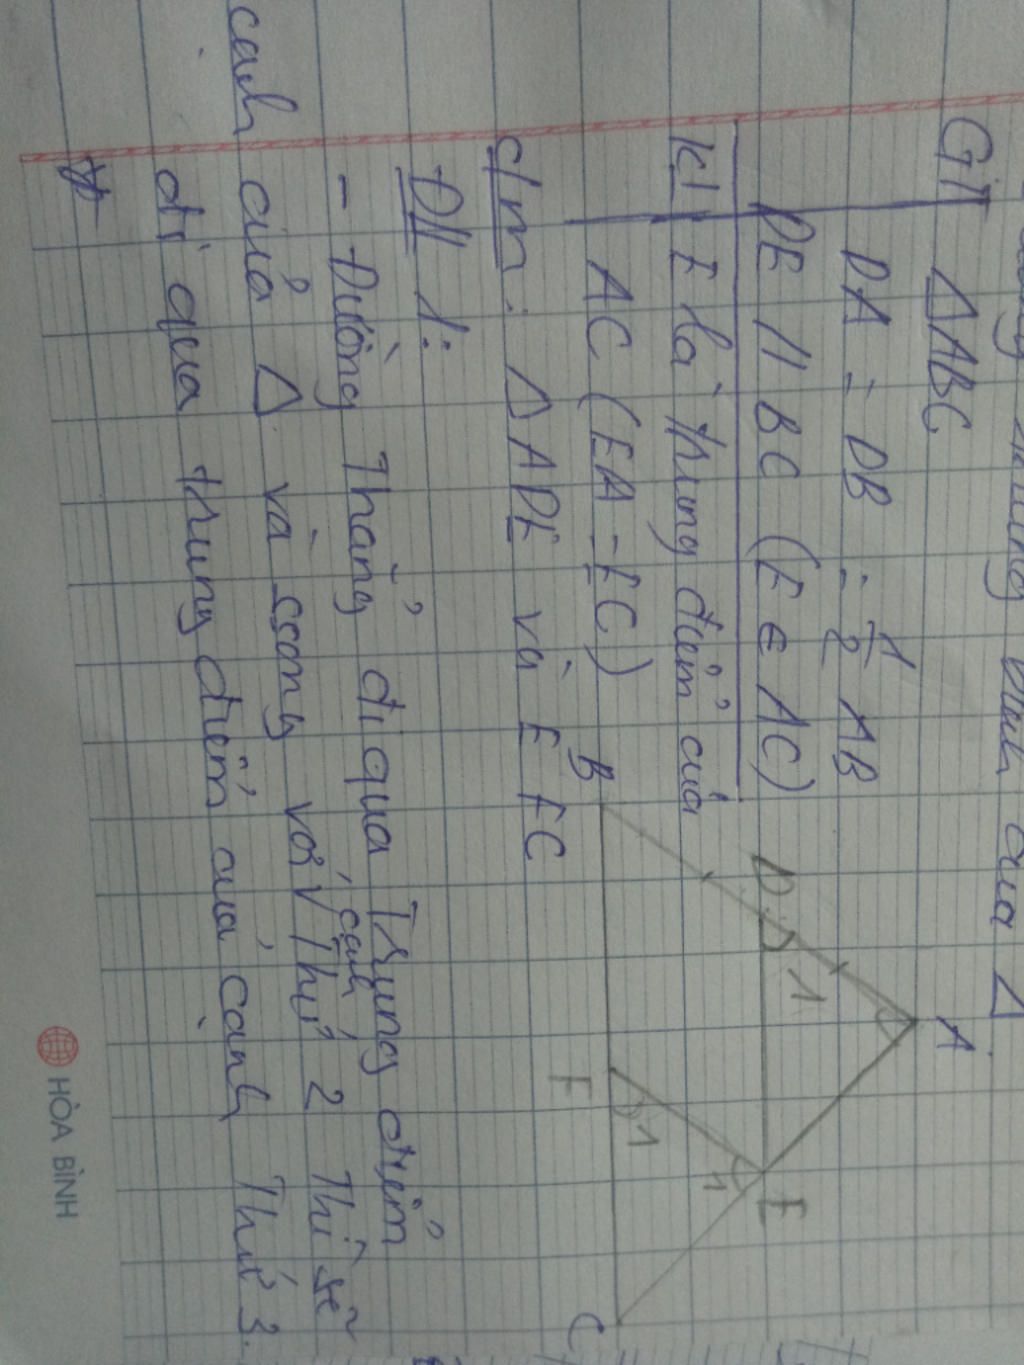 đường trung bình của Δ
GT ΔABC
DA = DB = 1/2 AB
DE // BC (E ∈ AC)
KL E là trung điểm của
AC (EA = EC)
c/m: ΔADE và EFC
ĐL 1:
- Đường Thẳng đi qua Trung điểm
cạnh của Δ và song với cạnh Thứ 2 Thì sẽ
đi qua trung điểm của cạnh Thứ 3.
A
D
1
B
E
1
F
1
C
HÒA BÌNH